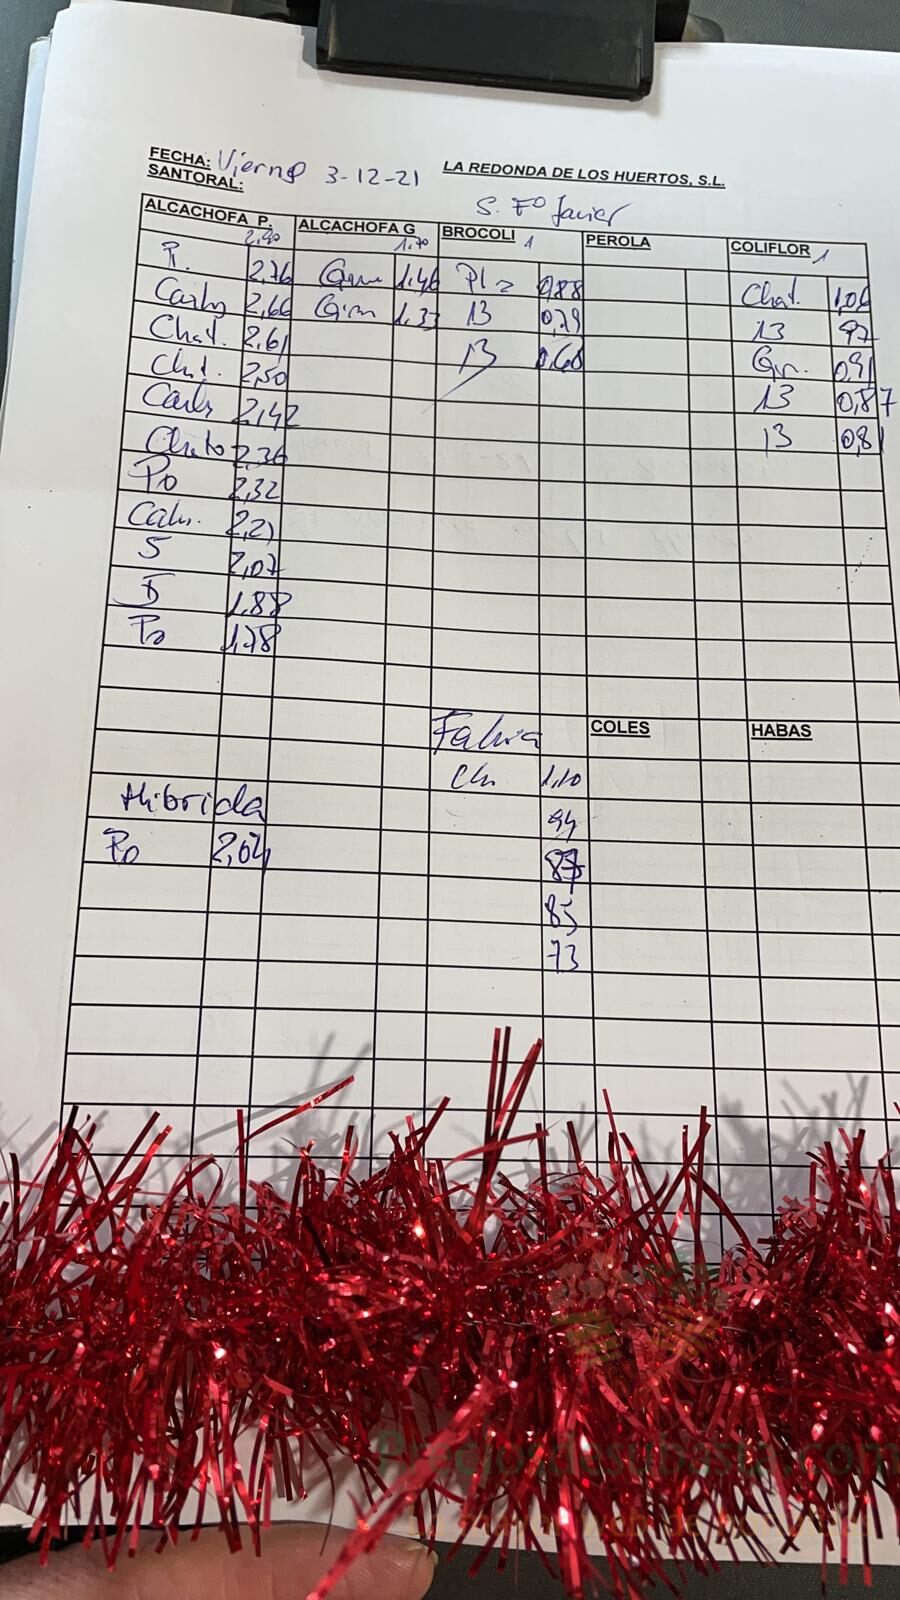 FECHA: Viernes 3-12-21
LA REDONDA DE LOS HUERTOS, S.L.
SANTORAL:
S. Fº Javier
ALCACHOFA P. 2,90
P. 2,76
Carlos 2,66
Chat. 2,61
Chat. 2,50
Carlos 2,42
Chato 2,36
Po 2,32
2,21
5 2,07
5 1,88
Po 1,78
Hibrida
Po 2,04
ALCACHOFA G 1,70
1,46
1,33
BROCOLI 1
Pl 2 0,88
13 0,79
13 0,60
Fabria
Ch 1,10
94
87
85
73
PEROLA
COLIFLOR 1
Chat. 1,06
13 97
Gin. 0,91
13 0,87
13 0,81
COLES
HABAS
Preciosdesubasta.com